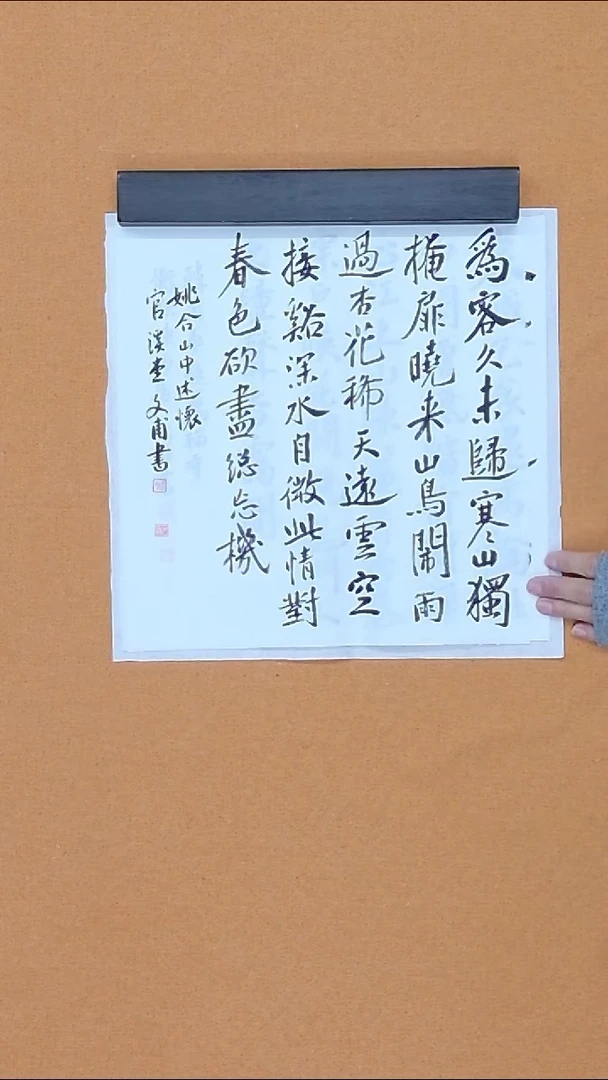 為客久未歸寒山獨
掩扉曉来山鳥鬧雨
過杏花稀天遠雲空
接谿深水自微此情對
春色欲盡總忘機
姚合山中述懷
官溪 文甫書